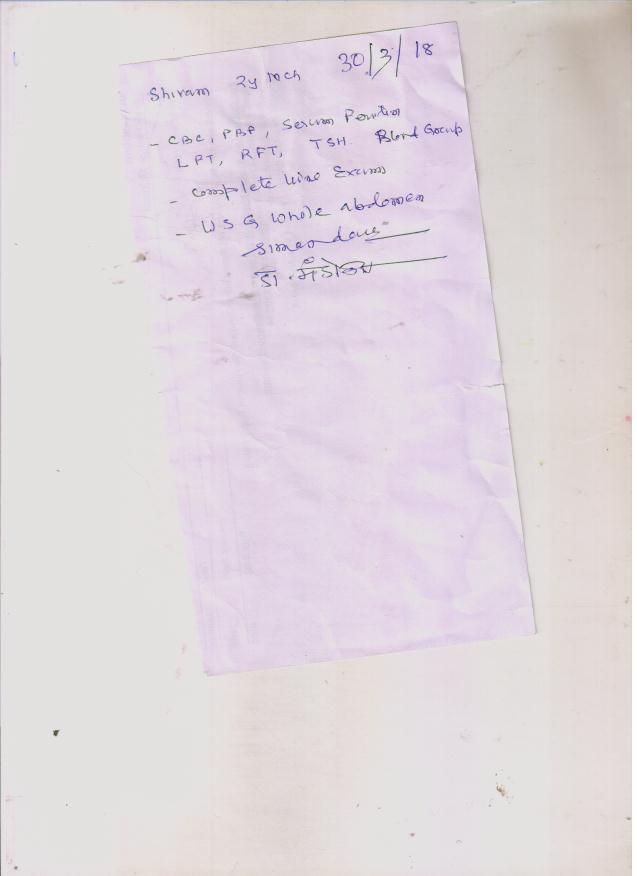 Shivam 2y mch 30/3/18
- CBC, PBF, Serum Ferritin
LFT, RFT, TSH. Blood Group
- Complete Urine Exam
- USG Whole abdomen
डा.